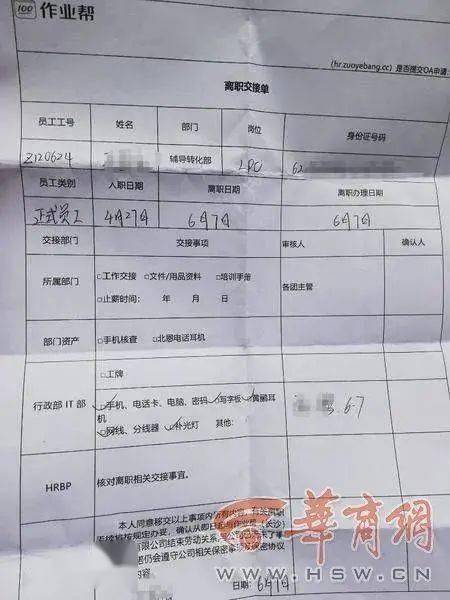 100 作业帮
(hr.zuoyebang.cc)是否提交OA申请:
离职交接单
员工工号 姓名 部门 岗位 身份证号码
Z120624 辅导转化部 LPC 62
员工类别 入职日期 离职日期 离职办理日期
正式员工 4月27日 6月7日 6月7日
交接部门 交接事项 审核人 确认人
所属部门 □工作交接 □文件/用品资料 □培训手册 各团主管
□止薪时间： 年 月 日
部门资产 □手机核查 □北恩电话耳机
□工牌
行政部 IT 部 手机、电话卡、电脑、密码 写字板 黄鹂耳机 6.7
网线、分线器 补光灯 其他:
HRBP 核对离职相关交接事宜。
本人同意移交以上事项内所有内容，
手续将按规定办妥，确认从即日起与作业帮（长沙）
有限公司结束劳动关系
仍会遵守公司相关保密事项
内容
日期: 6月7日
华商网
WWW.HSW.CN